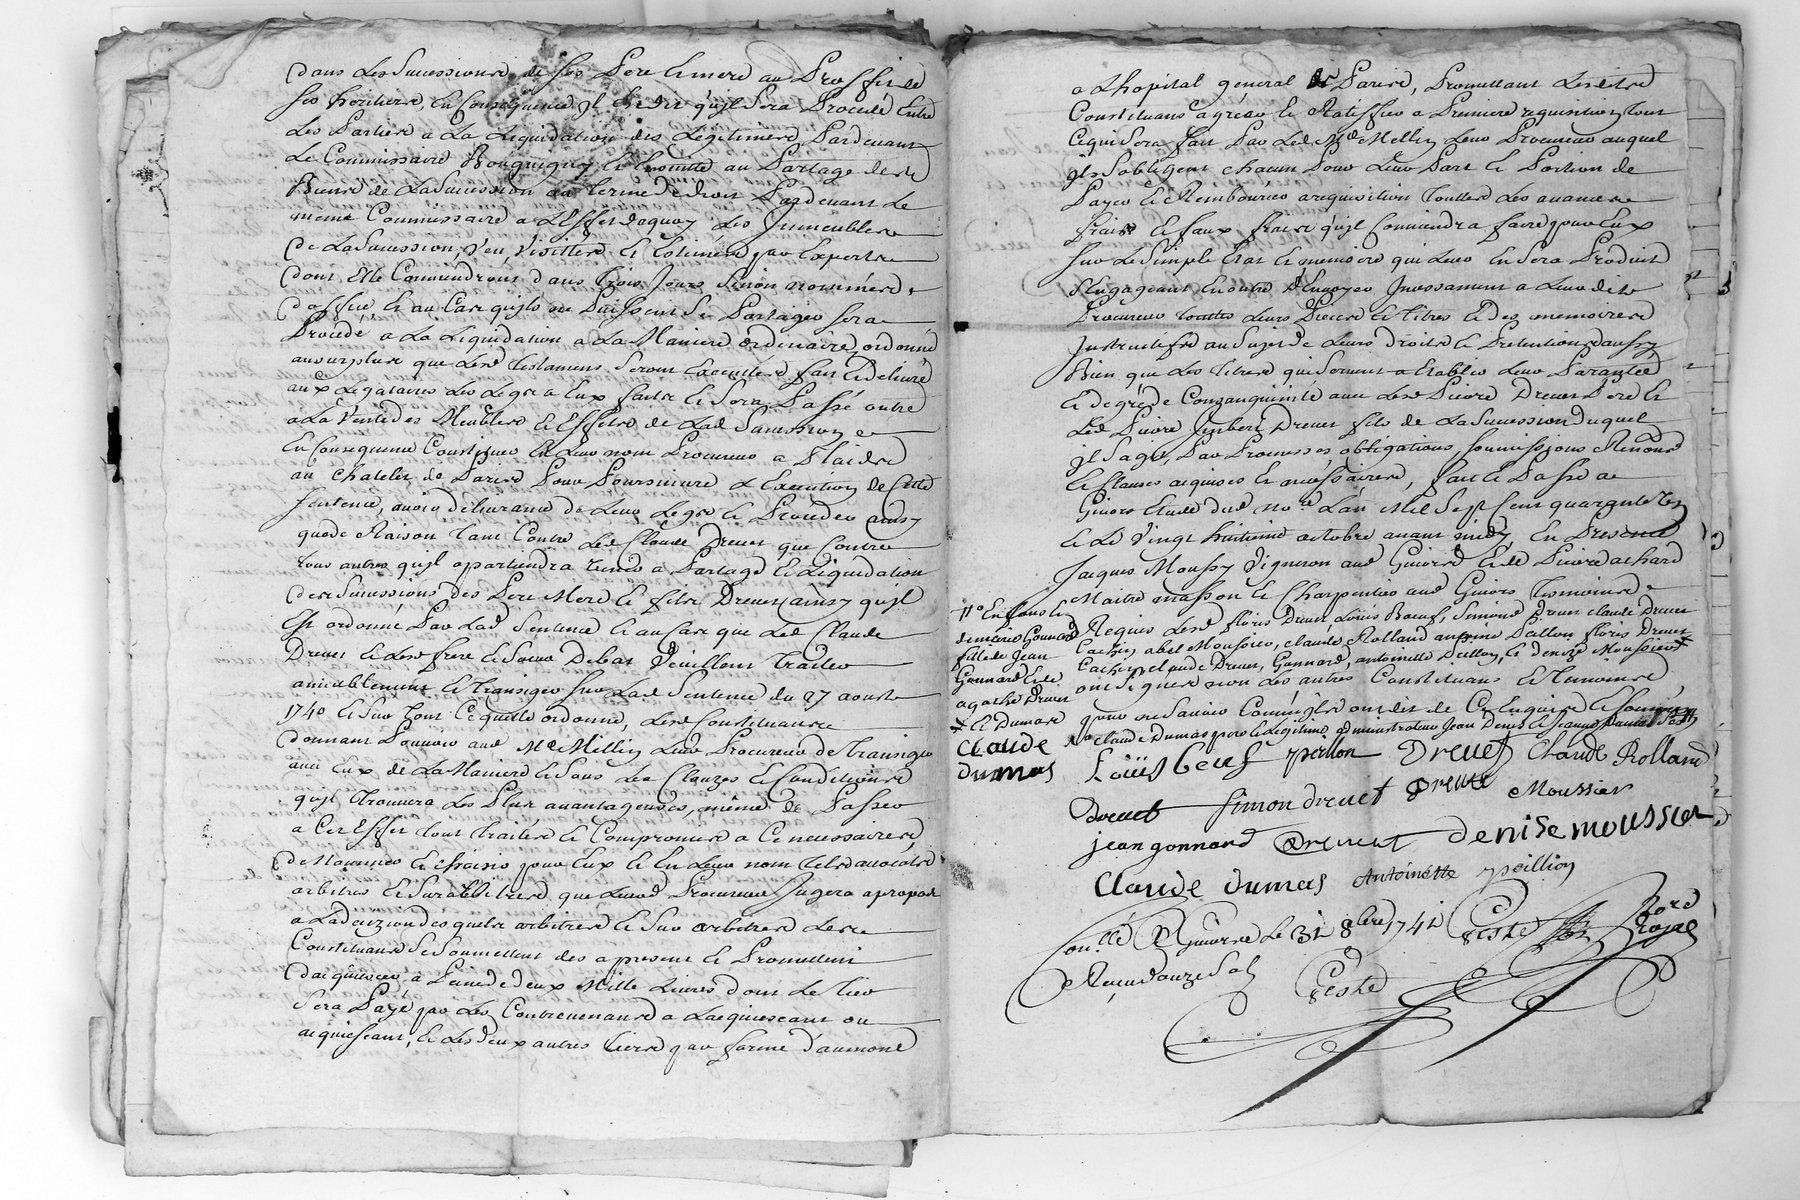 dans les successions de ses Pere et mere au Proffit de
ses heritiers, En Consequence jl Est dit qu'jl sera Procedé Entre
Les Parties a La Liquidation des Legitimes Pardevant
Le Commissaire Bourguignon Et Ensuite au Partage desd
Biens de La Succession au terme de droit Pardevant Le
meme Commissaire a L'Effet de quoy Les Jmmeubles
de La Succession, Veu, Visittes et Estimés par Experts
dont Elle Conviendront dans trois Jours Sinon nommés
d'office, et au Cas qu'jls ne Puissent Se Partager sera
Procedé a La Liquidation a La Maniere ordinaire, ordonné
au surplus que Lesd testamens Seront Executtes fait Et delivré
aux Legataires Les Legs a Eux faits et Sera Passé outre
a La Vente des Meubles et Effets de Lad Succession
En Consequence Constituer En Leur nom Procureur a Plaids
au Chatelet de Paris Pour Poursuivre L'Execution de Cette
Sentence, avoir delivrance de Leur Legs et Proceder ainsy
que de Raison tant Contre Led Claude Drevet que Contre
tous autres qu'jl apartiendra Venir a Partage et Liquidation
des Successions des Pere Mere et fils Drevet ainsy qu'jl
Est ordonné Par Lad Sentence et au Cas que Led Claude
Drevet et Lesd frere et Soeur Debat Veuillent traiter
amiablement et transiger Sur Lad Sentence du 27 aoust
1740 et Sur tout Ce qu'elle ordonne, Lesd Constituants
donnant Pouvoir aud Me Millin Leur Procureur de transiger
avec Eux de La Maniere et Sous Les Clauzes et Conditions
qu'jl trouvera Les Plus avantageuses, même de Passer
a Cet Effet tout traités et Compromis a Ce necessaires,
de Nommer et choisir pour Eux et En Leur nom tels avocats
arbitres et Surarbitres que Leurd Procureur Jugera a propos
a La decizion desquels arbitres et Sur arbitres Lesd
Constituans Se Soumettent des a present et Promettent
d'acquiescer a Peine de deux Mille Livres dont Le tiers
Sera Payé par Les Contrevenans a L'acquiescant ou
acquiescant, et Les deux autres tiers par forme d'aumone
a L'hopital general de Paris, Promettant Lesdits
Constituans agréer et Ratiffier a Premiere requisition tout
Ce qui Sera fait Par Led Me Millin Leur Procureur auquel
jls S'obligent chacun Pour Leur Part et Portion de
Payer et Rembourcer a requisition touttes Les avances
frais et faux frais qu'jl Conviendra faire pour Eux
Sur Le Simple Etat et memoire qui Leur En Sera Produit
S'Engageant En outre d'Envoyer Jncessament a Leur dit
Procureur touttes Leurs Pieces et titres et des memoires
Jnstructifs au Sujet de Leurs droits et Pretentions aussy
Bien que Les titres qui Servent a Etablir Leur Parantée
et degré de Conzanguinité avec Lesd Sieurs Drevet Pere et
Led Sieur Jmbert Drevet fils de La Succession duquel
jl S'agit, Par Promesses obligations, Soumissions Renonc
et Clauses requises et necessaires, fait et Passé a
Givors Etude dud nore L'an Mil Sept Cent quarante Un
et Le Vingt huitieme octobre avant midy, En Presence
Jacques Moussy Vigneron aud Givors Et de Pierre achard
Maitre masson et Charpentier aud Givors temoins
Requis Lesd floris Drevet Loüis Boeuf, Simond Drevet claude Drevet
Cachet, abel Moussier, claude Rolland, antoine Peillon floris Drevet
Cachet, claude Drevet, Gonnard, antoinette Peillon, et denize Moussier
ont Signés non Les autres Constituans et temoins,
pour ne Savoir Comm' jls ont dit de Ce Enquis et Sommés
claude Dumas pere et Legitime administrateur Jean Denis et Jeanne Dumas
11° Enfans et
de marie Gonnard
fille de Jean
Gonnard Et de
agathe Drevet
Et Dumas
claude
dumas
Loüis beuf peillon Drevet Claude Rolland
Drevet simon drevet Drevet Moussier
jean gonnard Drevet denise moussier
claude dumas Antoinette peillion
Conllé A Givors Le 31 8bre 1741
Reçu douze Sols